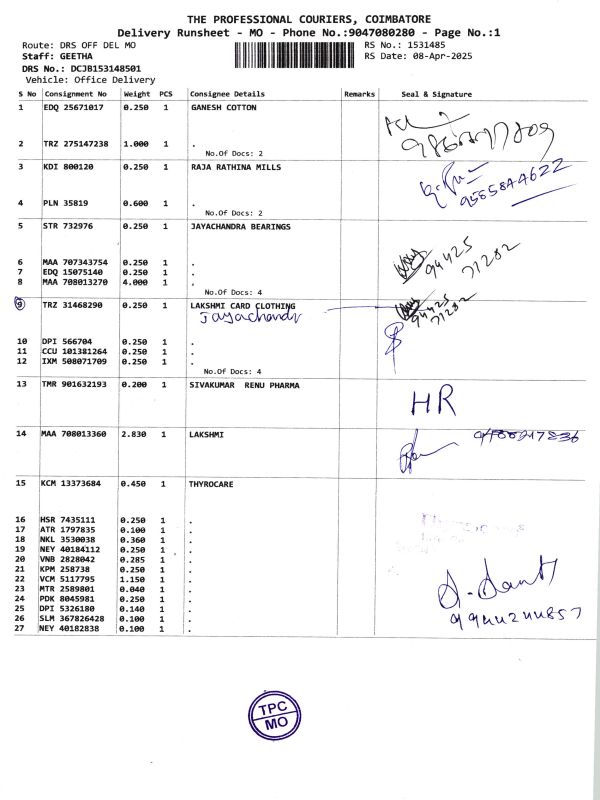 THE PROFESSIONAL COURIERS, COIMBATORE
Delivery Runsheet - MO - Phone No.:9047080280 - Page No.:1
Route: DRS OFF DEL MO RS No.: 1531485
Staff: GEETHA RS Date: 08-Apr-2025
DRS No.: DCJB153148501
Vehicle: Office Delivery
S No Consignment No Weight PCS Consignee Details Remarks Seal & Signature
1 EDQ 25671017 0.250 1 GANESH COTTON
2 TRZ 275147238 1.000 1 .
No.Of Docs: 2
3 KDI 800120 0.250 1 RAJA RATHINA MILLS
9585844622
4 PLN 35819 0.600 1 .
No.Of Docs: 2
5 STR 732976 0.250 1 JAYACHANDRA BEARINGS
94425
71282
6 MAA 707343754 0.250 1 .
7 EDQ 15075140 0.250 1 .
8 MAA 708013270 4.000 1 .
No.Of Docs: 4
9 TRZ 31468290 0.250 1 LAKSHMI CARD CLOTHING
Jayachandr
94425
71282
10 DPI 566704 0.250 1 .
11 CCU 101381264 0.250 1 .
12 IXM 508071709 0.250 1 .
No.Of Docs: 4
13 TMR 901632193 0.200 1 SIVAKUMAR RENU PHARMA
HR
14 MAA 708013360 2.830 1 LAKSHMI
15 KCM 13373684 0.450 1 THYROCARE
16 HSR 7435111 0.250 1 .
17 ATR 1797835 0.100 1 .
18 NKL 3530038 0.360 1 .
19 NEY 40184112 0.250 1 .
20 VNB 2828042 0.285 1 .
21 KPM 258738 0.250 1 .
22 VCM 5117795 1.150 1 .
23 MTR 2589801 0.040 1 .
24 PDK 8045981 0.250 1 .
25 DPI 5326180 0.140 1 .
26 SLM 367826428 0.100 1 .
27 NEY 40182838 0.100 1 .
9944244857
TPC
MO